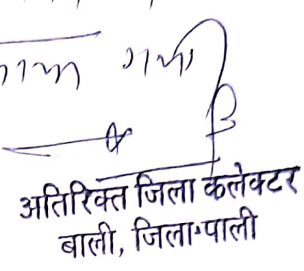 गया
अतिरिक्त जिला कलेक्टर
बाली, जिला-पाली